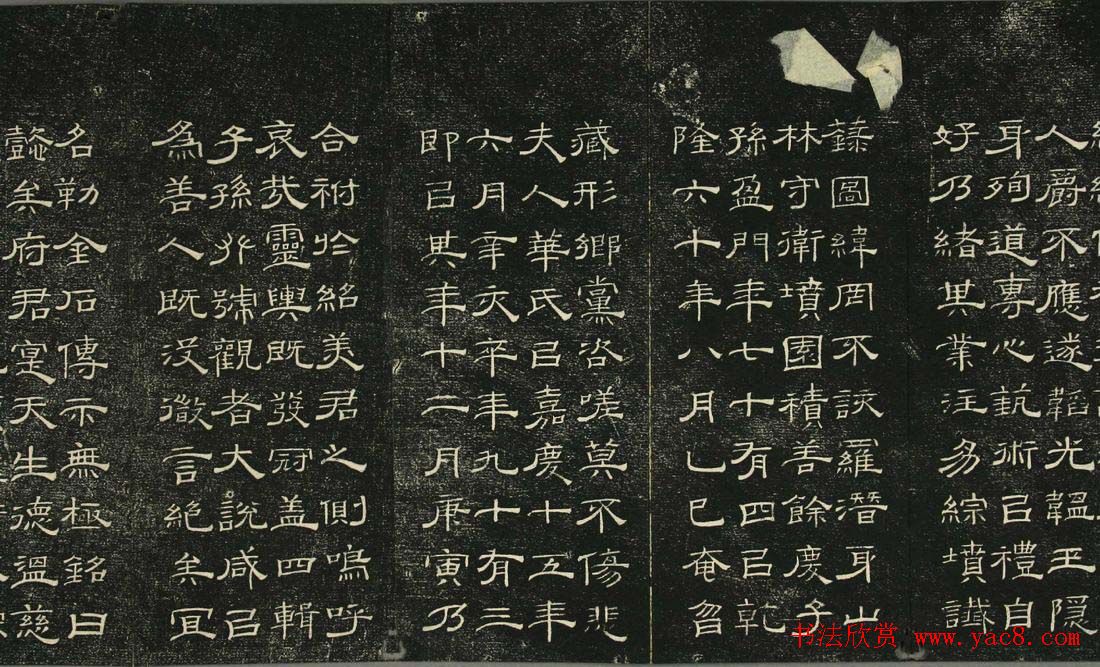 人爵不應遂韜光韞玉隱
身殉道專心藝術㠯禮自
好乃緒其業注易綜墳讖
蓺圖緯罔不該羅潛身山
林守衛墳園積善餘慶子
孫盈門年七十有四㠯乾
隆六十年八月乙巳奄曶
藏形鄉黨咨嗟莫不傷悲
夫人華氏㠯嘉慶十五年
六月辛亥卒年九十有三
即㠯其年十二月庚寅乃
合祔於紹美君之側嗚呼
哀哉靈輿既發冠蓋四輯
子孫號觀者大說咸㠯
為善人既沒微言絕矣宜
名勒金石傳示無極銘曰
懿矣府君寔天生德溫慈
书法欣赏 www.yac8.com